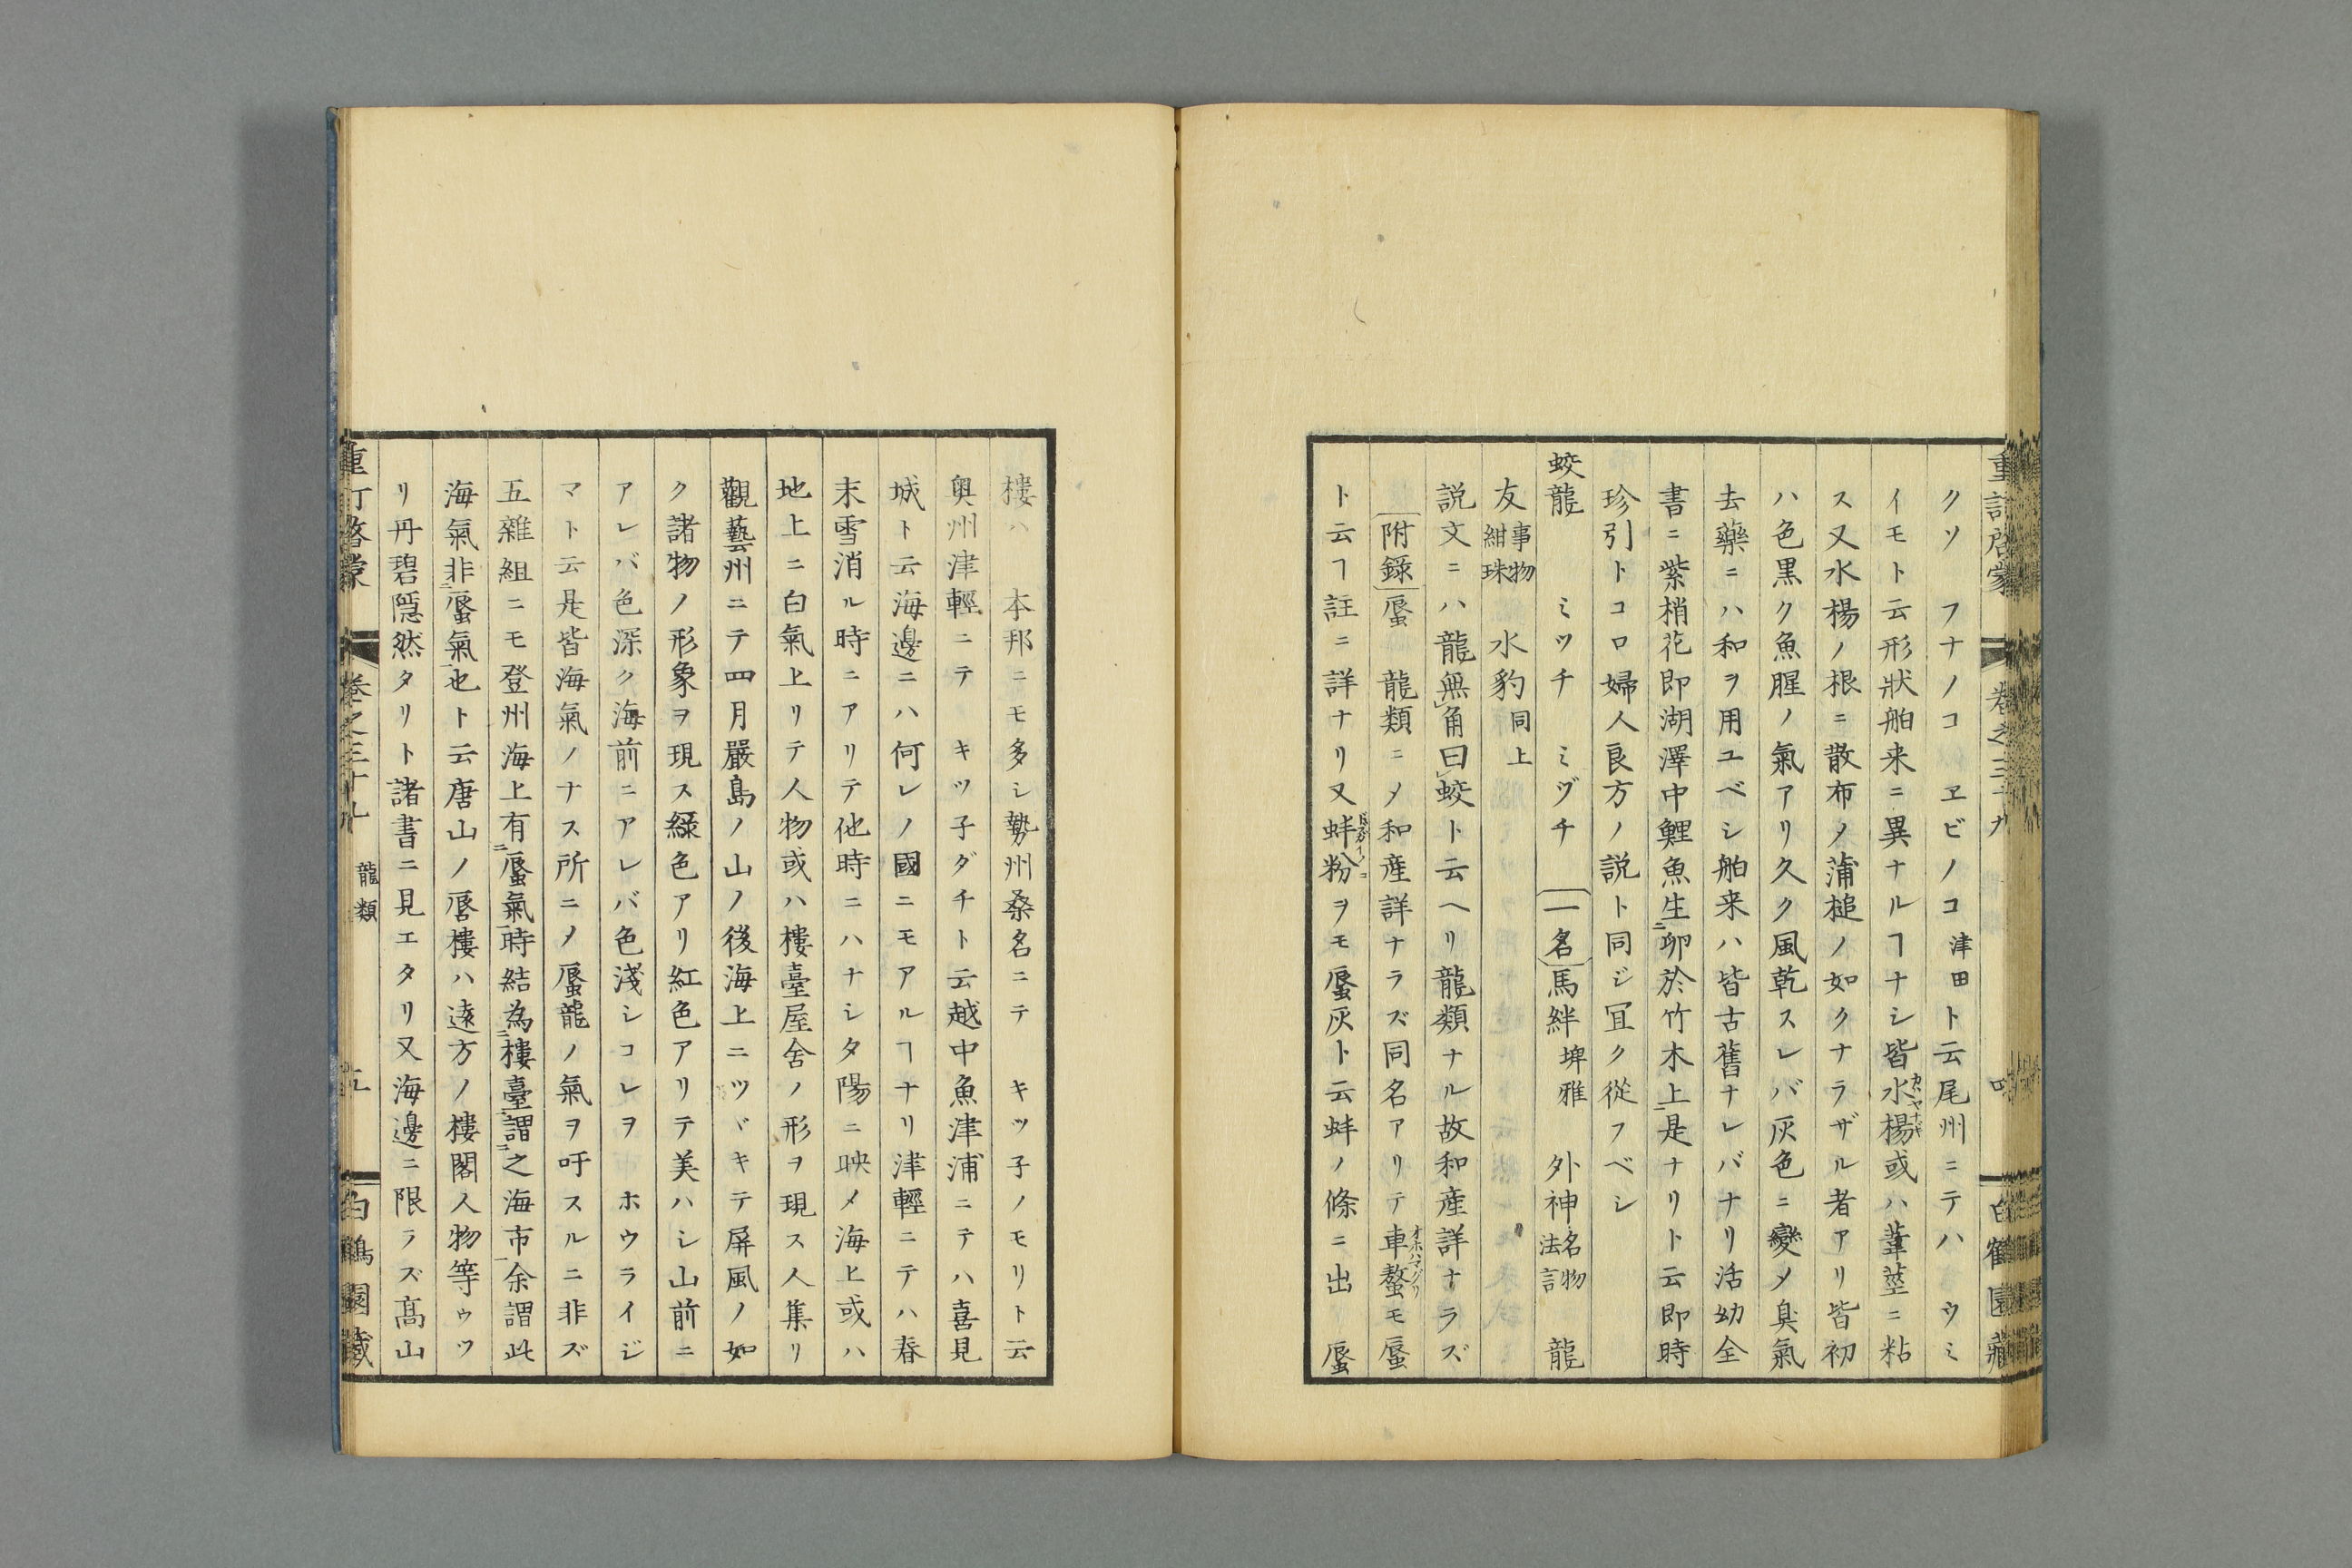 重訂啓蒙 卷之三十九 四 白鶴園藏
クソ フナノコ ヱビノコ 津田ト云尾州ニテハ ウミ
イモト云形狀舶来ニ異ナルヿナシ皆水楊カハヤナギ或ハ葦莖ニ粘
ス又水楊ノ根ニ散布メ蒲槌ノ如クナラザル者アリ皆初
ハ色黒ク魚腥ノ氣アリ久ク風乾スレバ灰色ニ變メ臭氣
去藥ニハ和ヲ用ユベシ舶来ハ皆古舊ナレバナリ活幼全
書ニ紫梢花即湖澤中鯉魚生ニ卵於竹木上一是ナリト云即時
珍引トコロ婦人良方ノ説ト同ジ冝ク從フベシ
蛟龍 ミツチ ミヅチ 〔一名〕馬絆埤雅 外神名物法言 龍
友事物紺珠 水豹同上
説文ニハ龍無レ角曰レ蛟ト云ヘリ龍類ナル故和産詳ナラズ
〔附錄〕蜃 龍類ニメ和産詳ナラズ同名アリテ車螯オホハマグリモ蜃
ト云ヿ註ニ詳ナリ又蚌粉ヲモ蜃灰ト云蚌ノ條ニ出 蜃
樓ハ 本邦ニモ多シ勢州桑名ニテ キツ子ノモリト云
奥州津輕ニテ キツ子ダチト云越中魚津浦ニテハ喜見
城ト云海邊ニハ何レノ國ニモアルヿナリ津輕ニテハ春
末雪消ル時ニアリテ他時ニハナシ夕陽ニ映メ海上或ハ
地上ニ白氣上リテ人物或ハ樓臺屋舍ノ形ヲ現ス人集リ
觀藝州ニテ四月嚴島ノ山ノ後海上ニツヾキテ屏風ノ如
ク諸物ノ形象ヲ現ス綠色アリ紅色アリテ美ハシ山前ニ
アレバ色深ク海前ニアレバ色淺シコレヲ ホウライジ
マト云是皆海氣ノナス所ニメ蜃龍ノ氣ヲ吁スルニ非ズ
五雜組ニモ登州海上有ニ蜃氣一時結為ニ樓臺一謂ニ之海市一余謂此
海氣非ニ蜃氣一也ト云唐山ノ蜃樓ハ遠方ノ樓閣人物等ゥツ
リ丹碧隱然タリト諸書ニ見エタリ又海邊ニ限ラズ髙山
重訂啓蒙 卷之三十九 龍類 五 白鶴園藏